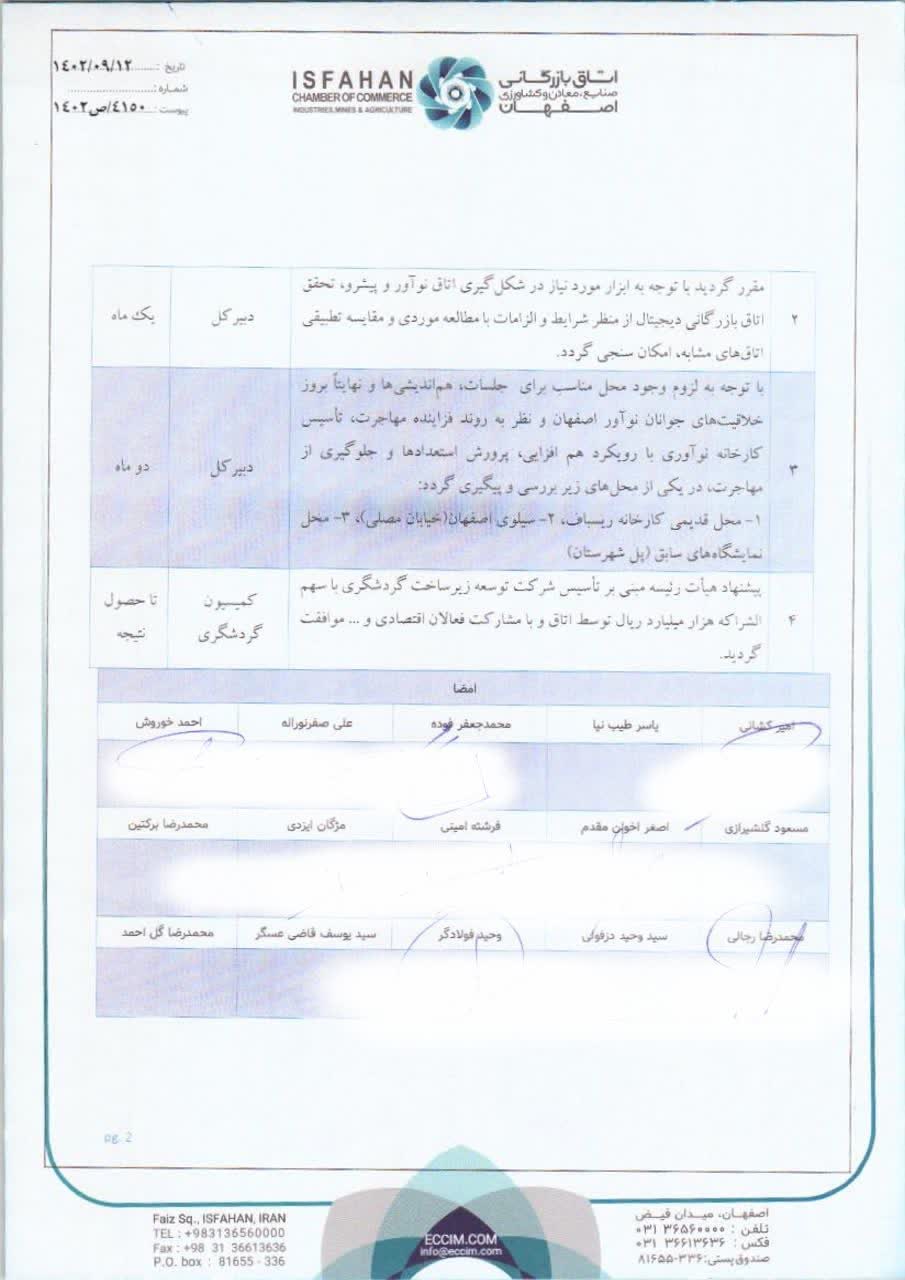 تاریخ: ۱٤۰۲/۰۹/۱۲
شماره:
پیوست: ۱٤۰۲/ص/٤۱٥۰
ISFAHAN
CHAMBER OF COMMERCE
INDUSTRIES, MINES & AGRICULTURE
اتاق بازرگانی
صنایع، معادن و کشاورزی
اصفهان
۲
مقرر گردید با توجه به ابزار مورد نیاز در شکل‌گیری اتاق نوآور و پیشرو، تحقق
اتاق بازرگانی دیجیتال از منظر شرایط و الزامات با مطالعه موردی و مقایسه تطبیقی
اتاق‌های مشابه، امکان سنجی گردد.
دبیرکل
یک ماه
۳
با توجه به لزوم وجود محل مناسب برای جلسات، هم‌اندیشی‌ها و نهایتاً بروز
خلاقیت‌های جوانان نوآور اصفهان و نظر به روند فزاینده مهاجرت، تأسیس
کارخانه نوآوری با رویکرد هم افزایی، پرورش استعدادها و جلوگیری از
مهاجرت، در یکی از محل‌های زیر بررسی و پیگیری گردد:
۱- محل قدیمی کارخانه ریسباف، ۲- سیلوی اصفهان(خیابان مصلی)، ۳- محل
نمایشگاه‌های سابق (پل شهرستان)
دبیرکل
دو ماه
۴
پیشنهاد هیأت رئیسه مبنی بر تأسیس شرکت توسعه زیرساخت گردشگری با سهم
الشراکه هزار میلیارد ریال توسط اتاق و با مشارکت فعالان اقتصادی و ... موافقت
گردید.
کمیسیون
گردشگری
تا حصول
نتیجه
امضا
امیر کشانی یاسر طیب نیا محمدجعفر فوده علی صفرنوراله احمد خوروش
مسعود گلشیرازی اصغر اخوان مقدم فرشته امینی مژگان ایزدی محمدرضا برکتین
محمدرضا رجالی سید وحید دزفولی وحید فولادگر سید یوسف قاضی عسگر محمدرضا گل احمد
pg. 2
Faiz Sq., ISFAHAN, IRAN
TEL : +983136560000
Fax : +98 31 36613636
P.O. box : 81655 - 336
ECCIM.COM
info@eccim.com
اصفهان، میدان فیض
تلفن : ۳۶۵۶۰۰۰۰ ۰۳۱
فکس : ۳۶۶۱۳۶۳۶ ۰۳۱
صندوق پستی: ۳۳۶-۸۱۶۵۵